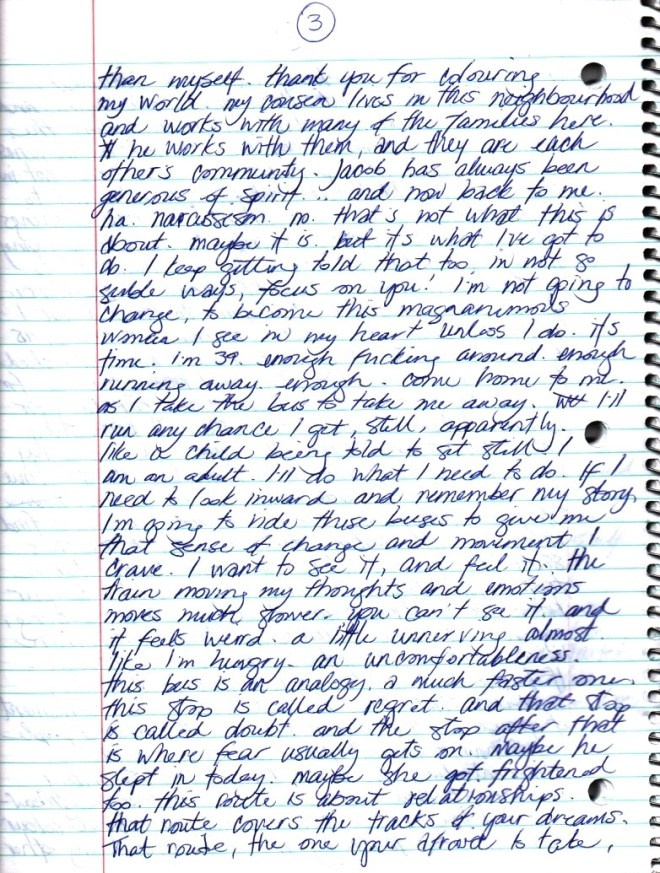 3
than myself. thank you for colouring
my world. my cousin lives in this neighbourhood
and works with many of the families here.
he works with them, and they are each
other's community. Jacob has always been
generous of spirit... and now back to me.
ha. narcassism. no. that's not what this is
about. maybe it is. but it's what I've got to
do. I keep getting told that too, in not so
subtle ways, focus on you! i'm not going to
change, to become this magnanimous
woman I see in my heart unless I do. it's
time. i'm 39. enough fucking around. enough
running away. enough. come home to me.
as I take the bus to take me away. I'll
run any chance I get, still, apparently.
like a child being told to sit still I
am an adult. I'll do what I need to do. If I
need to look inward and remember my story,
I'm going to ride these buses to give me
that sense of change and movement I
crave. I want to see it, and feel it. the
train moving my thoughts and emotions
moves much slower. you can't see it and
it feels weird. a little unnerving almost.
like I'm hungry. an uncomfortableness.
this bus is an analogy. a much faster one.
this stop is called regret. and that stop
is called doubt. and the stop after that
is where fear usually gets on. maybe he
slept in today. maybe she got frightened
too. this route is about relationships.
that route covers the tracks of your dreams.
That route, the one your afraid to take,